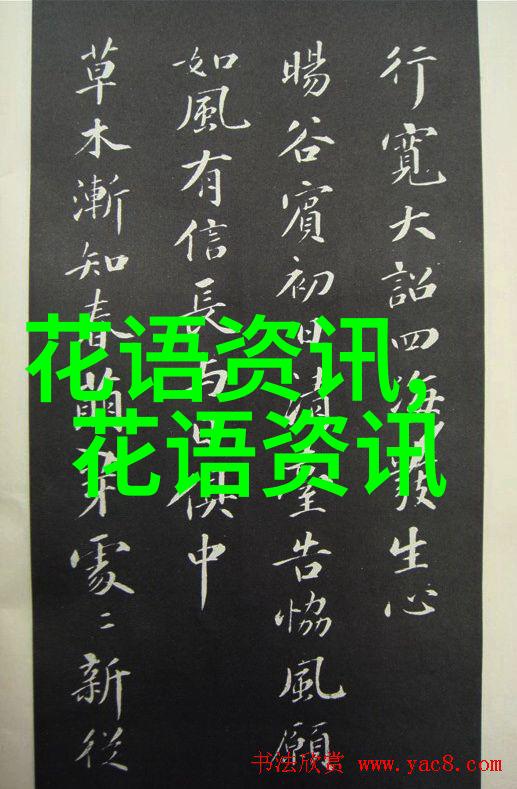 行寬大詔四海發生心
暘谷賓初日清臺告協風願
如風有信長與日俱中
草木漸知春萌芽處〻新從
花语资讯,
花语资讯
书法欣赏 www.yac8.com